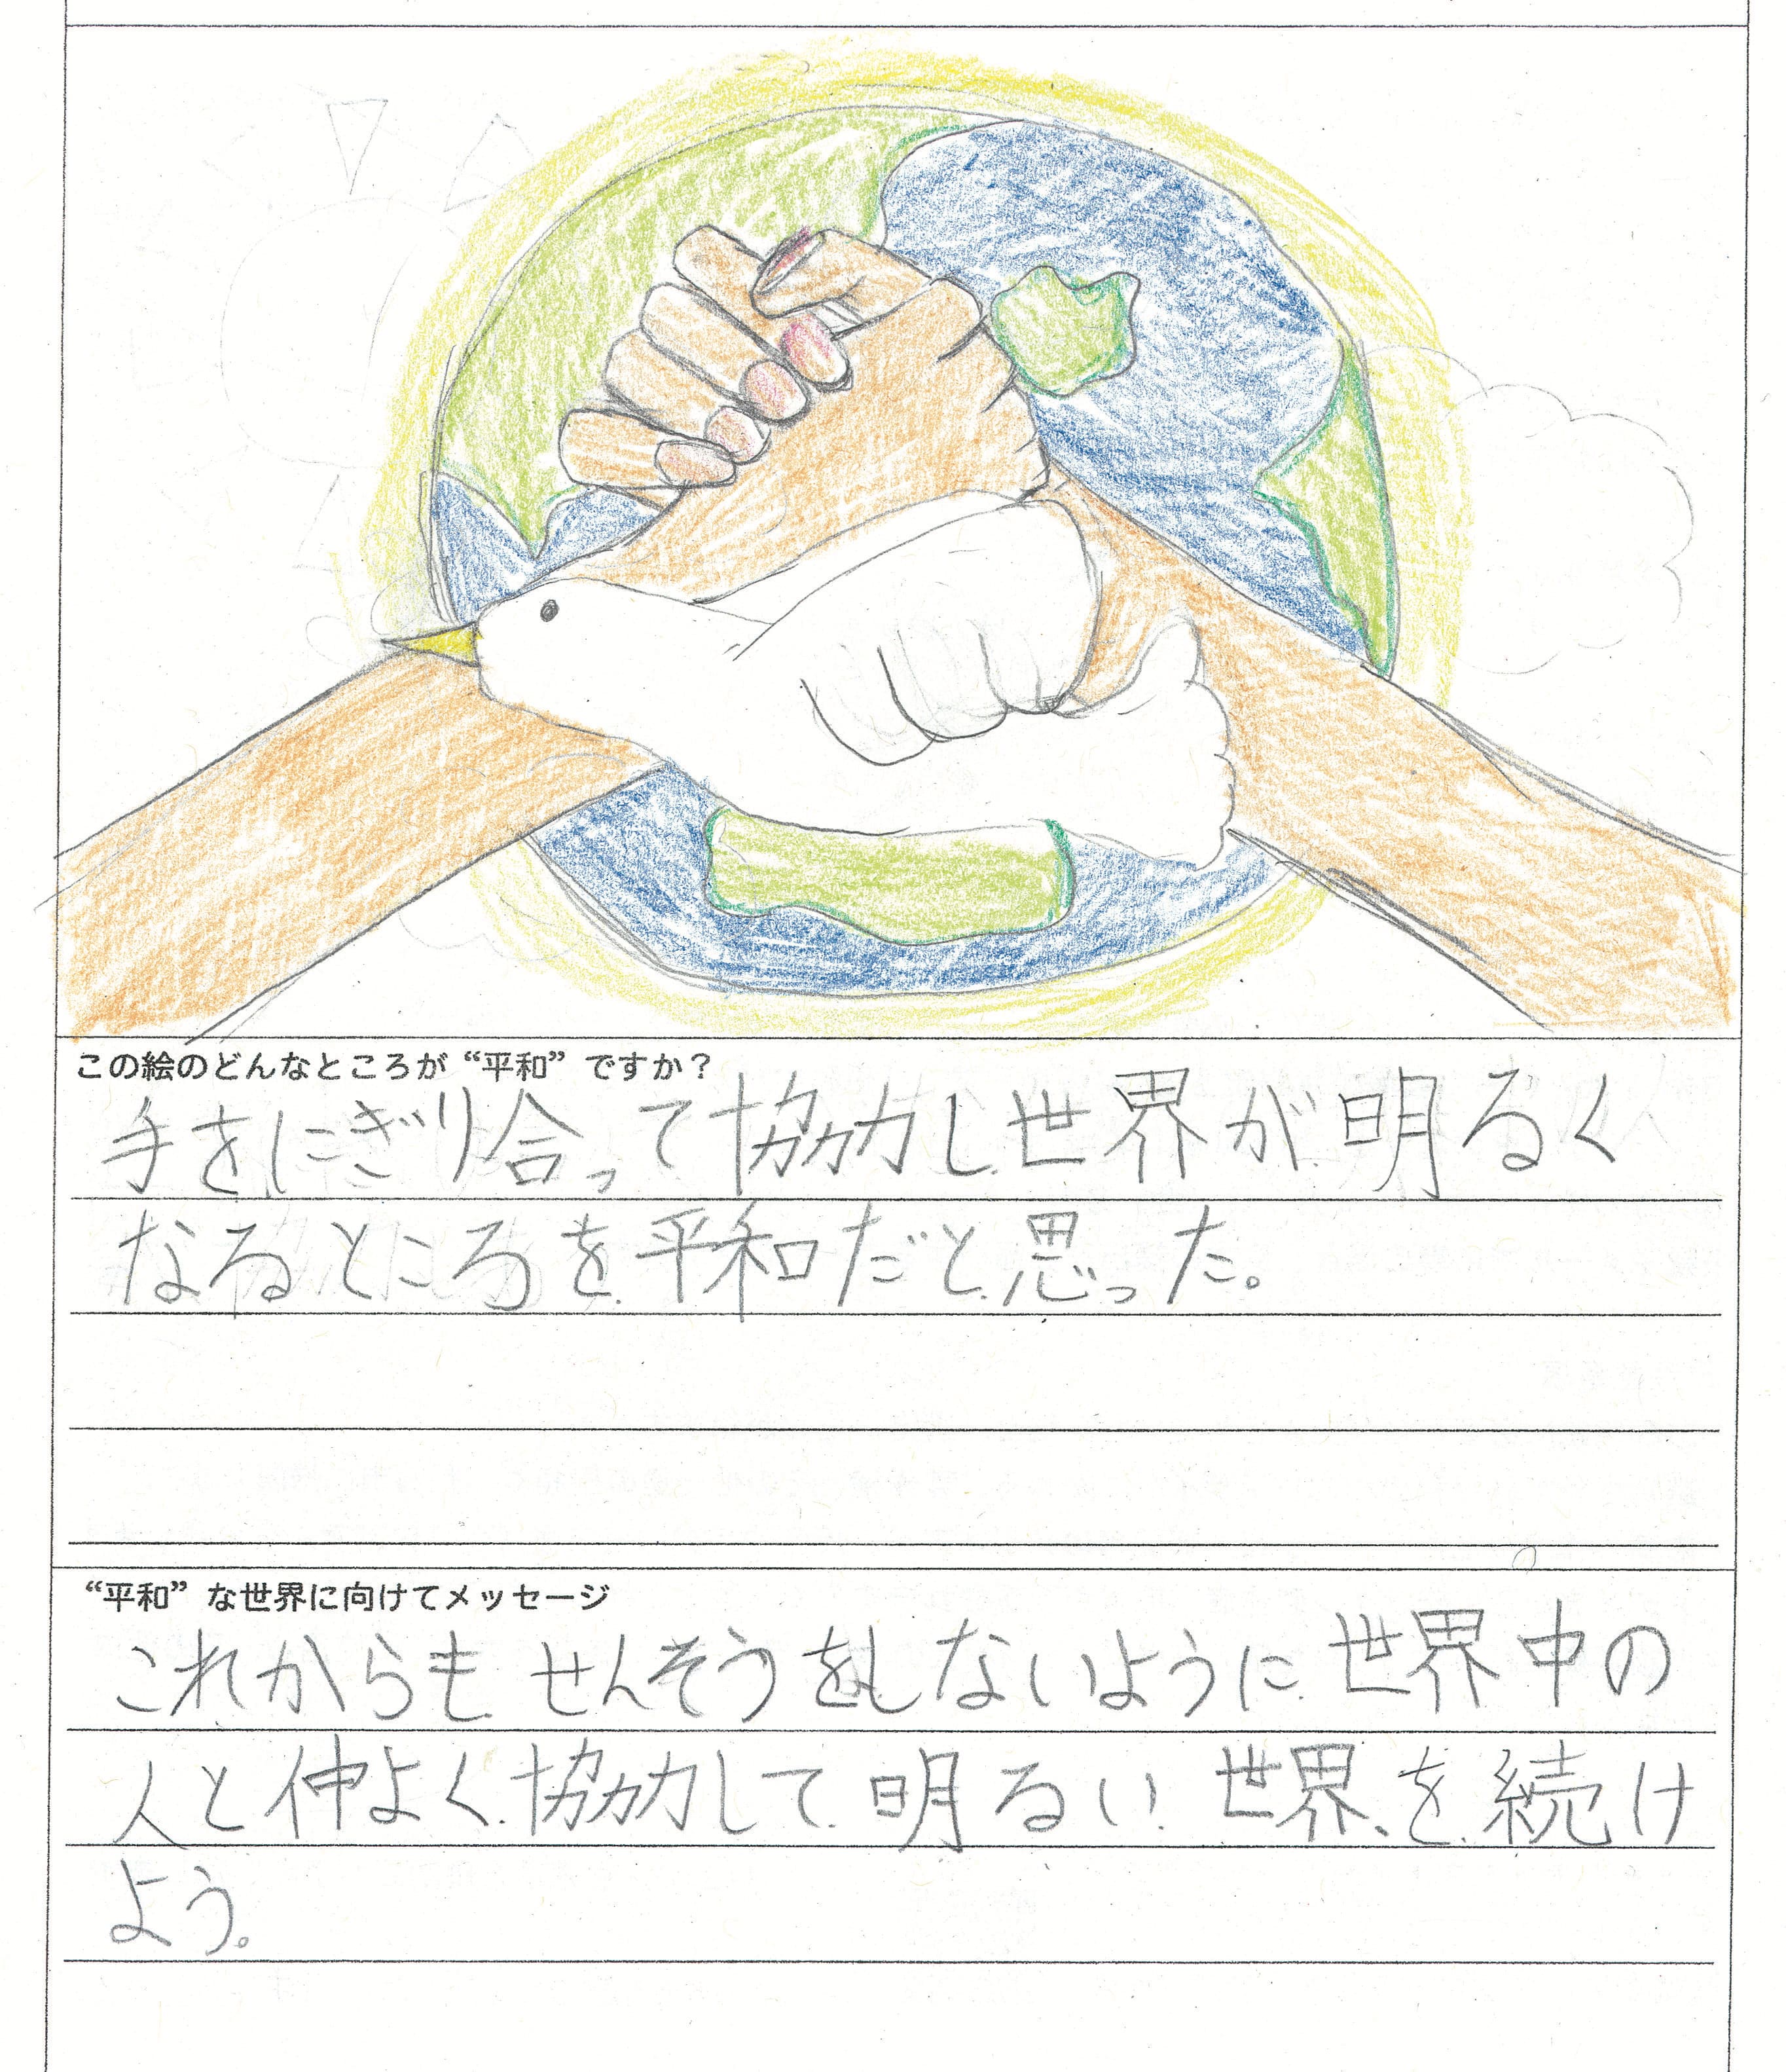 この絵のどんなところが“平和”ですか？
手をにぎり合って協力し世界が明るく
なるところを平和だと思った。
“平和”な世界に向けてメッセージ
これからもせんそうをしないように世界中の
人と仲よく協力して明るい世界を続け
よう。